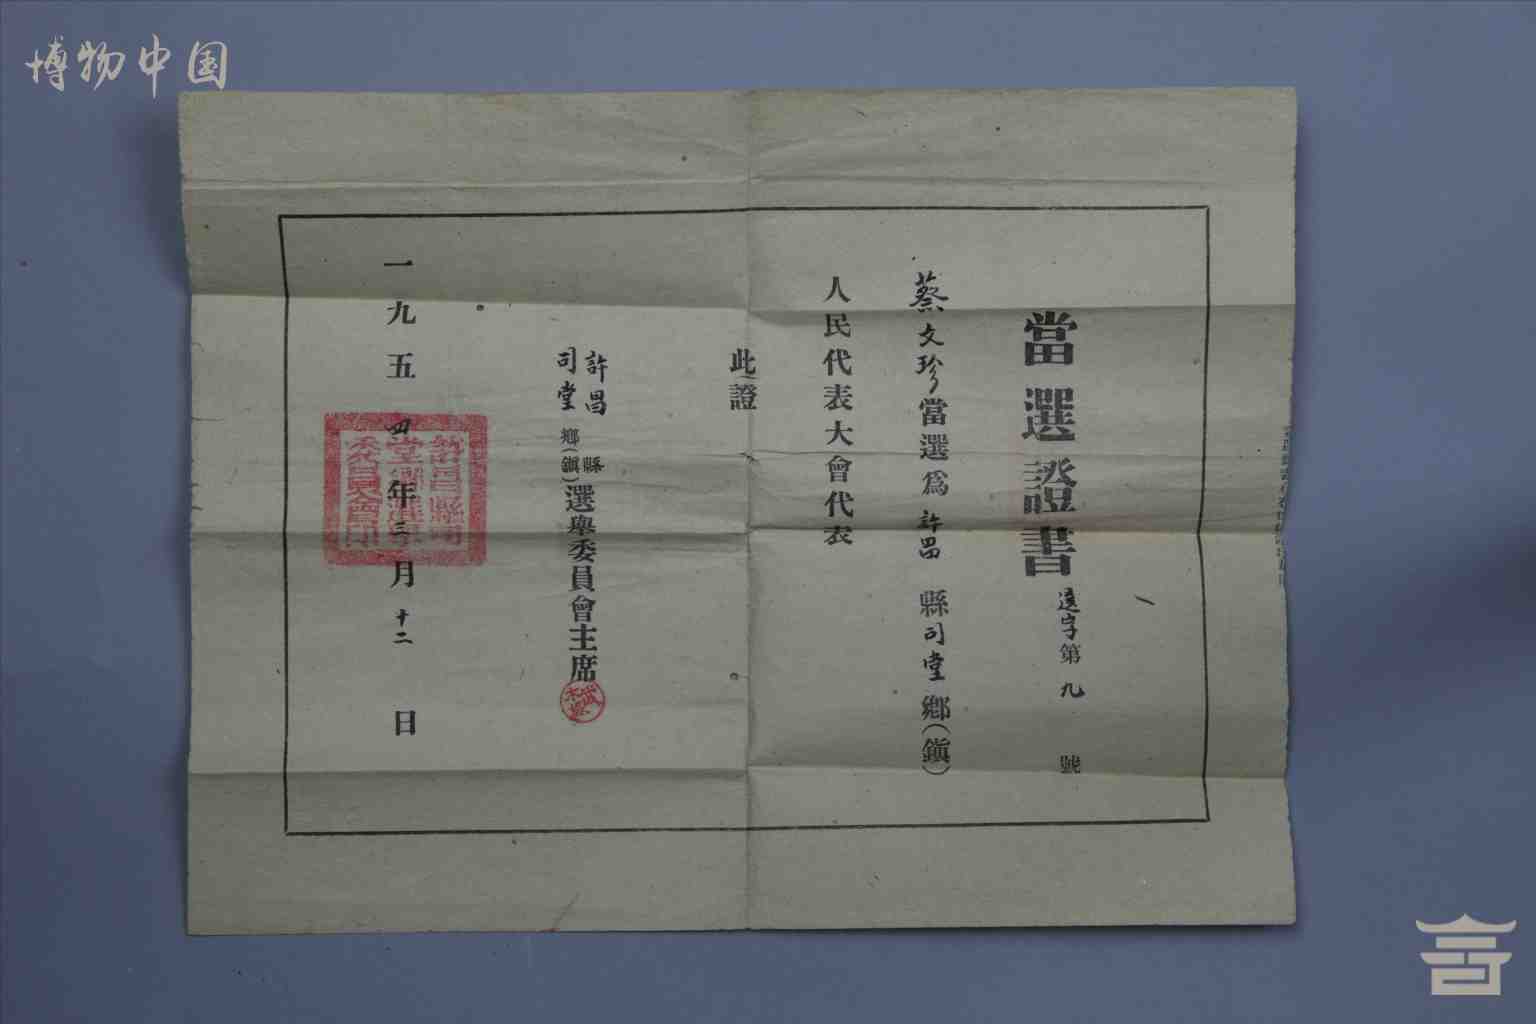 博物中国
當選證書
選字第九號
蔡文珍當選為許昌縣司堂鄉(鎮)
人民代表大會代表
此證
許昌縣
司堂鄉(鎮)
選舉委員會主席
一九五四年三月十二日